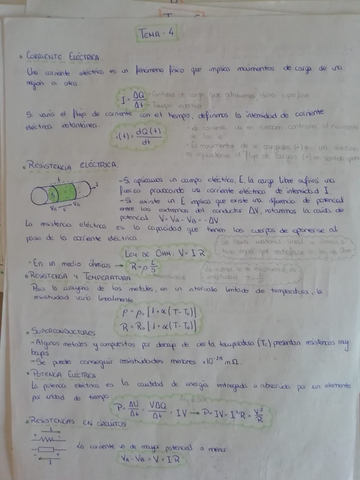 TEMA - 4
• CORRIENTE ELÉCTRICA
Una corriente eléctrica es un fenómeno físico que implica movimientos de carga de una
región a otra.
I = ΔQ/Δt → Cantidad de carga que atraviesa una superficie
→ Tiempo
Si varía el flujo de corriente con el tiempo, definimos la intensidad de corriente
eléctrica instantánea.
i(t) = dQ(t)/dt
• RESISTENCIA ELÉCTRICA
- Si aplicamos un campo eléctrico E, la carga libre sufrirá una
fuerza provocando una corriente eléctrica de intensidad I.
- Si existe un E implica que existe una diferencia de potencial
entre los extremos del conductor ΔV, notaremos la caída de
potencial V = Va - Vb = - ΔV
La resistencia eléctrica es la capacidad que tienen los cuerpos de oponerse al
paso de la corriente eléctrica.
LEY DE OHM: V = I·R
- En un medio óhmico → R = ρ
• RESISTENCIA Y TEMPERATURA
Para la mayoría de los metales, en un intervalo limitado de temperatura, la
resistividad varía linealmente
ρ = ρ₀ [1 + α(T - T₀)]
R = R₀ [1 + α(T - T₀)]
• SUPERCONDUCTORES
- Algunos metales y compuestos por debajo de cierta temperatura (Tc) presentan resistencias muy
bajas
- Se puede conseguir resistividades menores
• POTENCIA ELÉCTRICA
La potencia eléctrica es la cantidad de energía entregada o absorbida por un elemento
por unidad de tiempo
P = ΔU/Δt = VΔQ/Δt = I·V → P = I·V = I²·R = V²/R
• RESISTENCIAS EN CIRCUITOS
La corriente va de mayor potencial a menor
Va - Vb = V = I·R